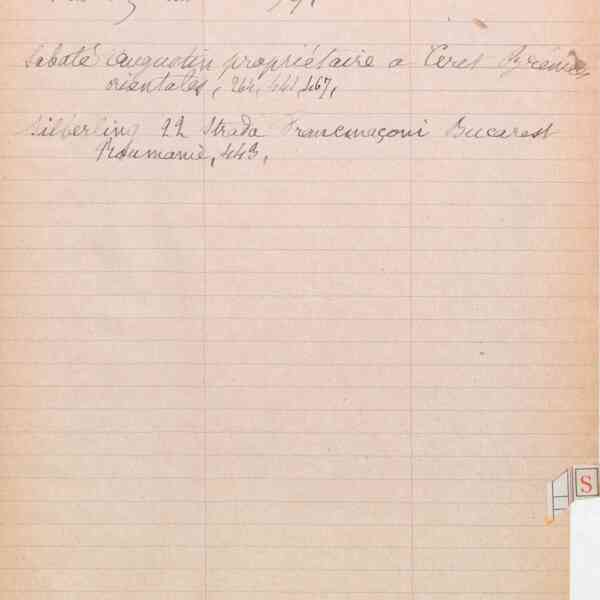 Sabaté Augustin propriétaire a Ceret Pyrénées
orientales, 264, 441, 467,
Silberling 22 Strada Francmaçoni Bucarest
Roumanie, 443,
S